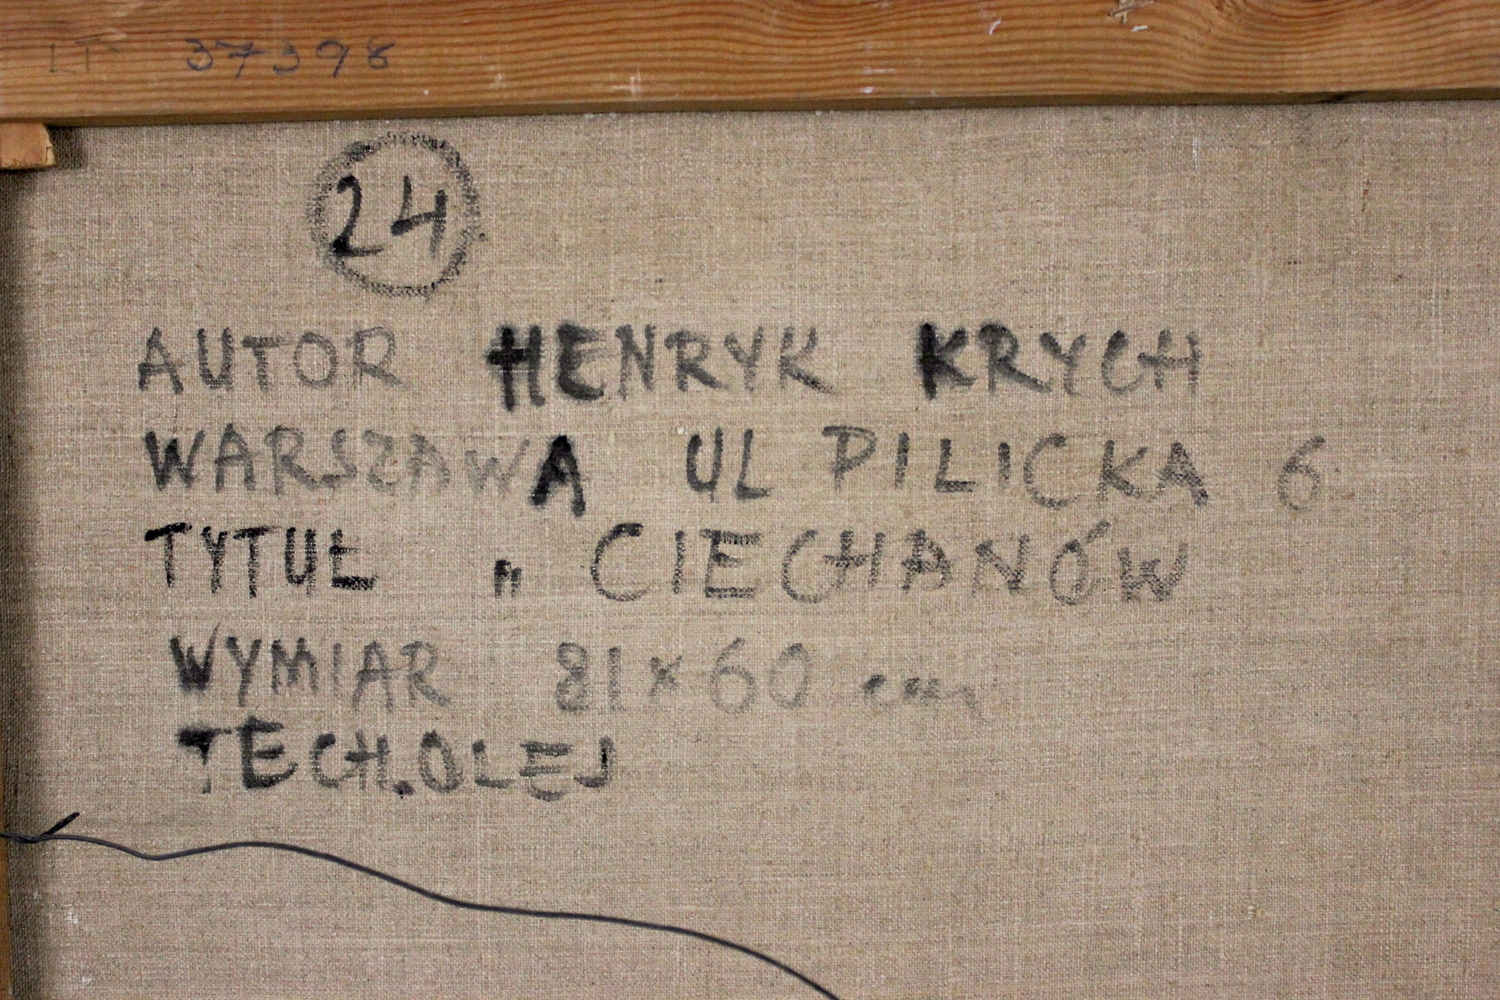 LT 37398
24
AUTOR HENRYK KRYCH
WARSZAWA UL PILICKA 6
TYTUŁ „ CIECHANÓW
WYMIAR 81×60 cm
TECH.OLEJ